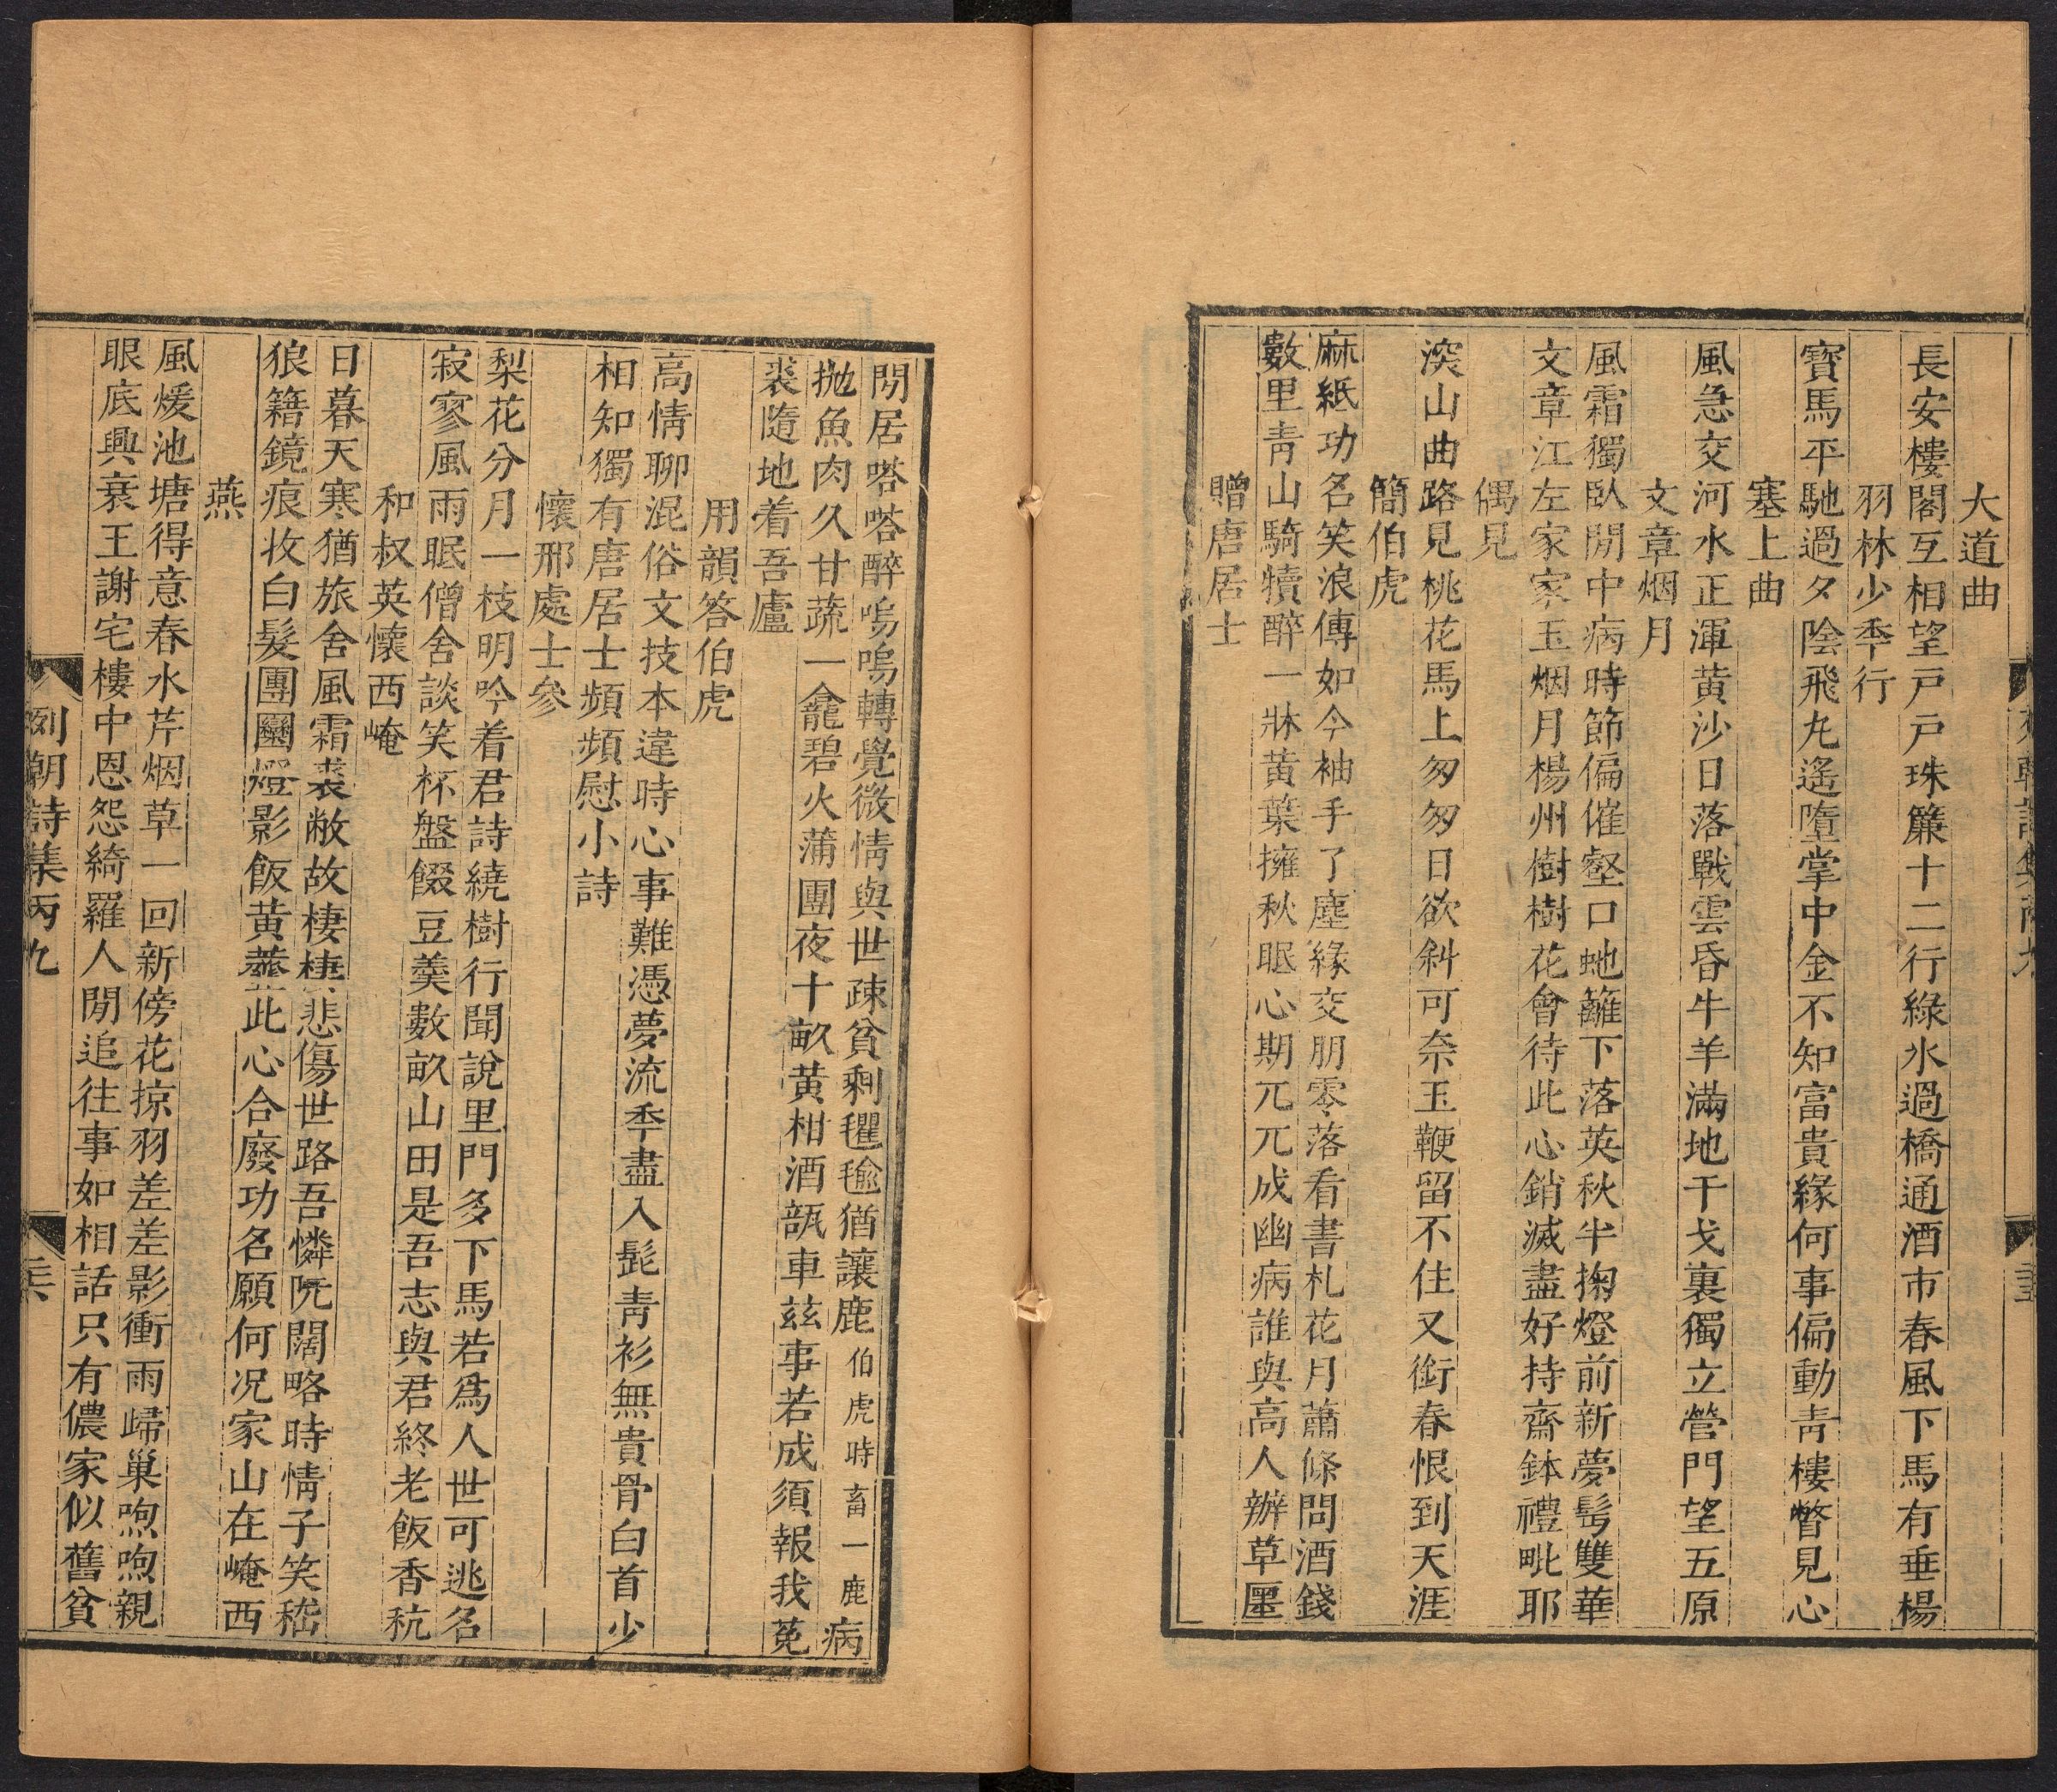 大道曲
長安樓閣互相望戸戸珠簾十二行綠水過橋通酒市春風下馬有垂楊
羽林少秊行
寶馬平馳過夕陰飛丸遙墮掌中金不知富貴緣何事偏動靑樓瞥見心
塞上曲
風急交河水正渾黄沙日落戰雲昏牛羊滿地干戈裏獨立營門望五原
文章烟月
風霜獨臥閒中病時節偏催壑口虵籬下落英秋半掬燈前新夢髩雙華
文章江左家家玉烟月楊州樹樹花會待此心銷滅盡好持齋鉢禮毗耶
偶見
深山曲路見桃花馬上匆匆日欲斜可奈玉鞭留不住又銜春恨到天涯
簡伯虎
麻紙功名笑浪傳如今袖手了塵緣交朋零落看書札花月蕭條問酒錢
數里靑山騎犢醉一牀黃葉擁秋眠心期兀兀成幽病誰與高人辦草廛
贈唐居士
閒居嗒嗒醉嗚嗚轉覺微情與世疎貧剩氍毺猶讓鹿伯虎時畜一鹿病
抛魚肉久甘蔬一龕碧火蒲團夜十畝黃柑酒瓻車茲事若成須報我莵
裘隨地着吾廬
用韻答伯虎
高情聊混俗文技本違時心事難憑夢流秊盡入髭靑衫無貴骨白首少
相知獨有唐居士頻頻慰小詩
懷邢處士參
梨花分月一枝明吟着君詩繞樹行聞說里門多下馬若爲人世可逃名
寂寥風雨眠僧舍談笑杯盤餟豆羹數畝山田是吾志與君終老飯香秔
和叔英懷西崦
日暮天寒猶旅舍風霜裘敝故棲棲悲傷世路吾憐阮闊略時情子笑嵇
狼籍鏡痕收白髮團圞燈影飯黃虀此心合廢功名願何况家山在崦西
燕
風煖池塘得意春水芹烟草一回新傍花掠羽差差影衝雨歸巢喣喣親
眼底興衰王謝宅樓中恩怨綺羅人閒追往事如相話只有儂家似舊貧
列朝詩集丙九